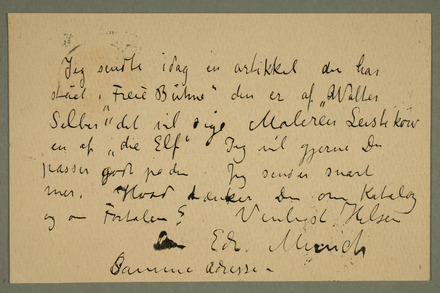 Jeg sendte idag en artikkel der har
stået i „Freie Bühne" den er af „Walter
Selber" det vil sige Maleren Leistikow
en af „die Elf" Jeg vil gjerne De
passer godt på den Jeg sender snart
mer. Hvad tænker De om Katalog
og om Fortalen? Venligst Hilsen
Edv. Munch
Samme adresse –